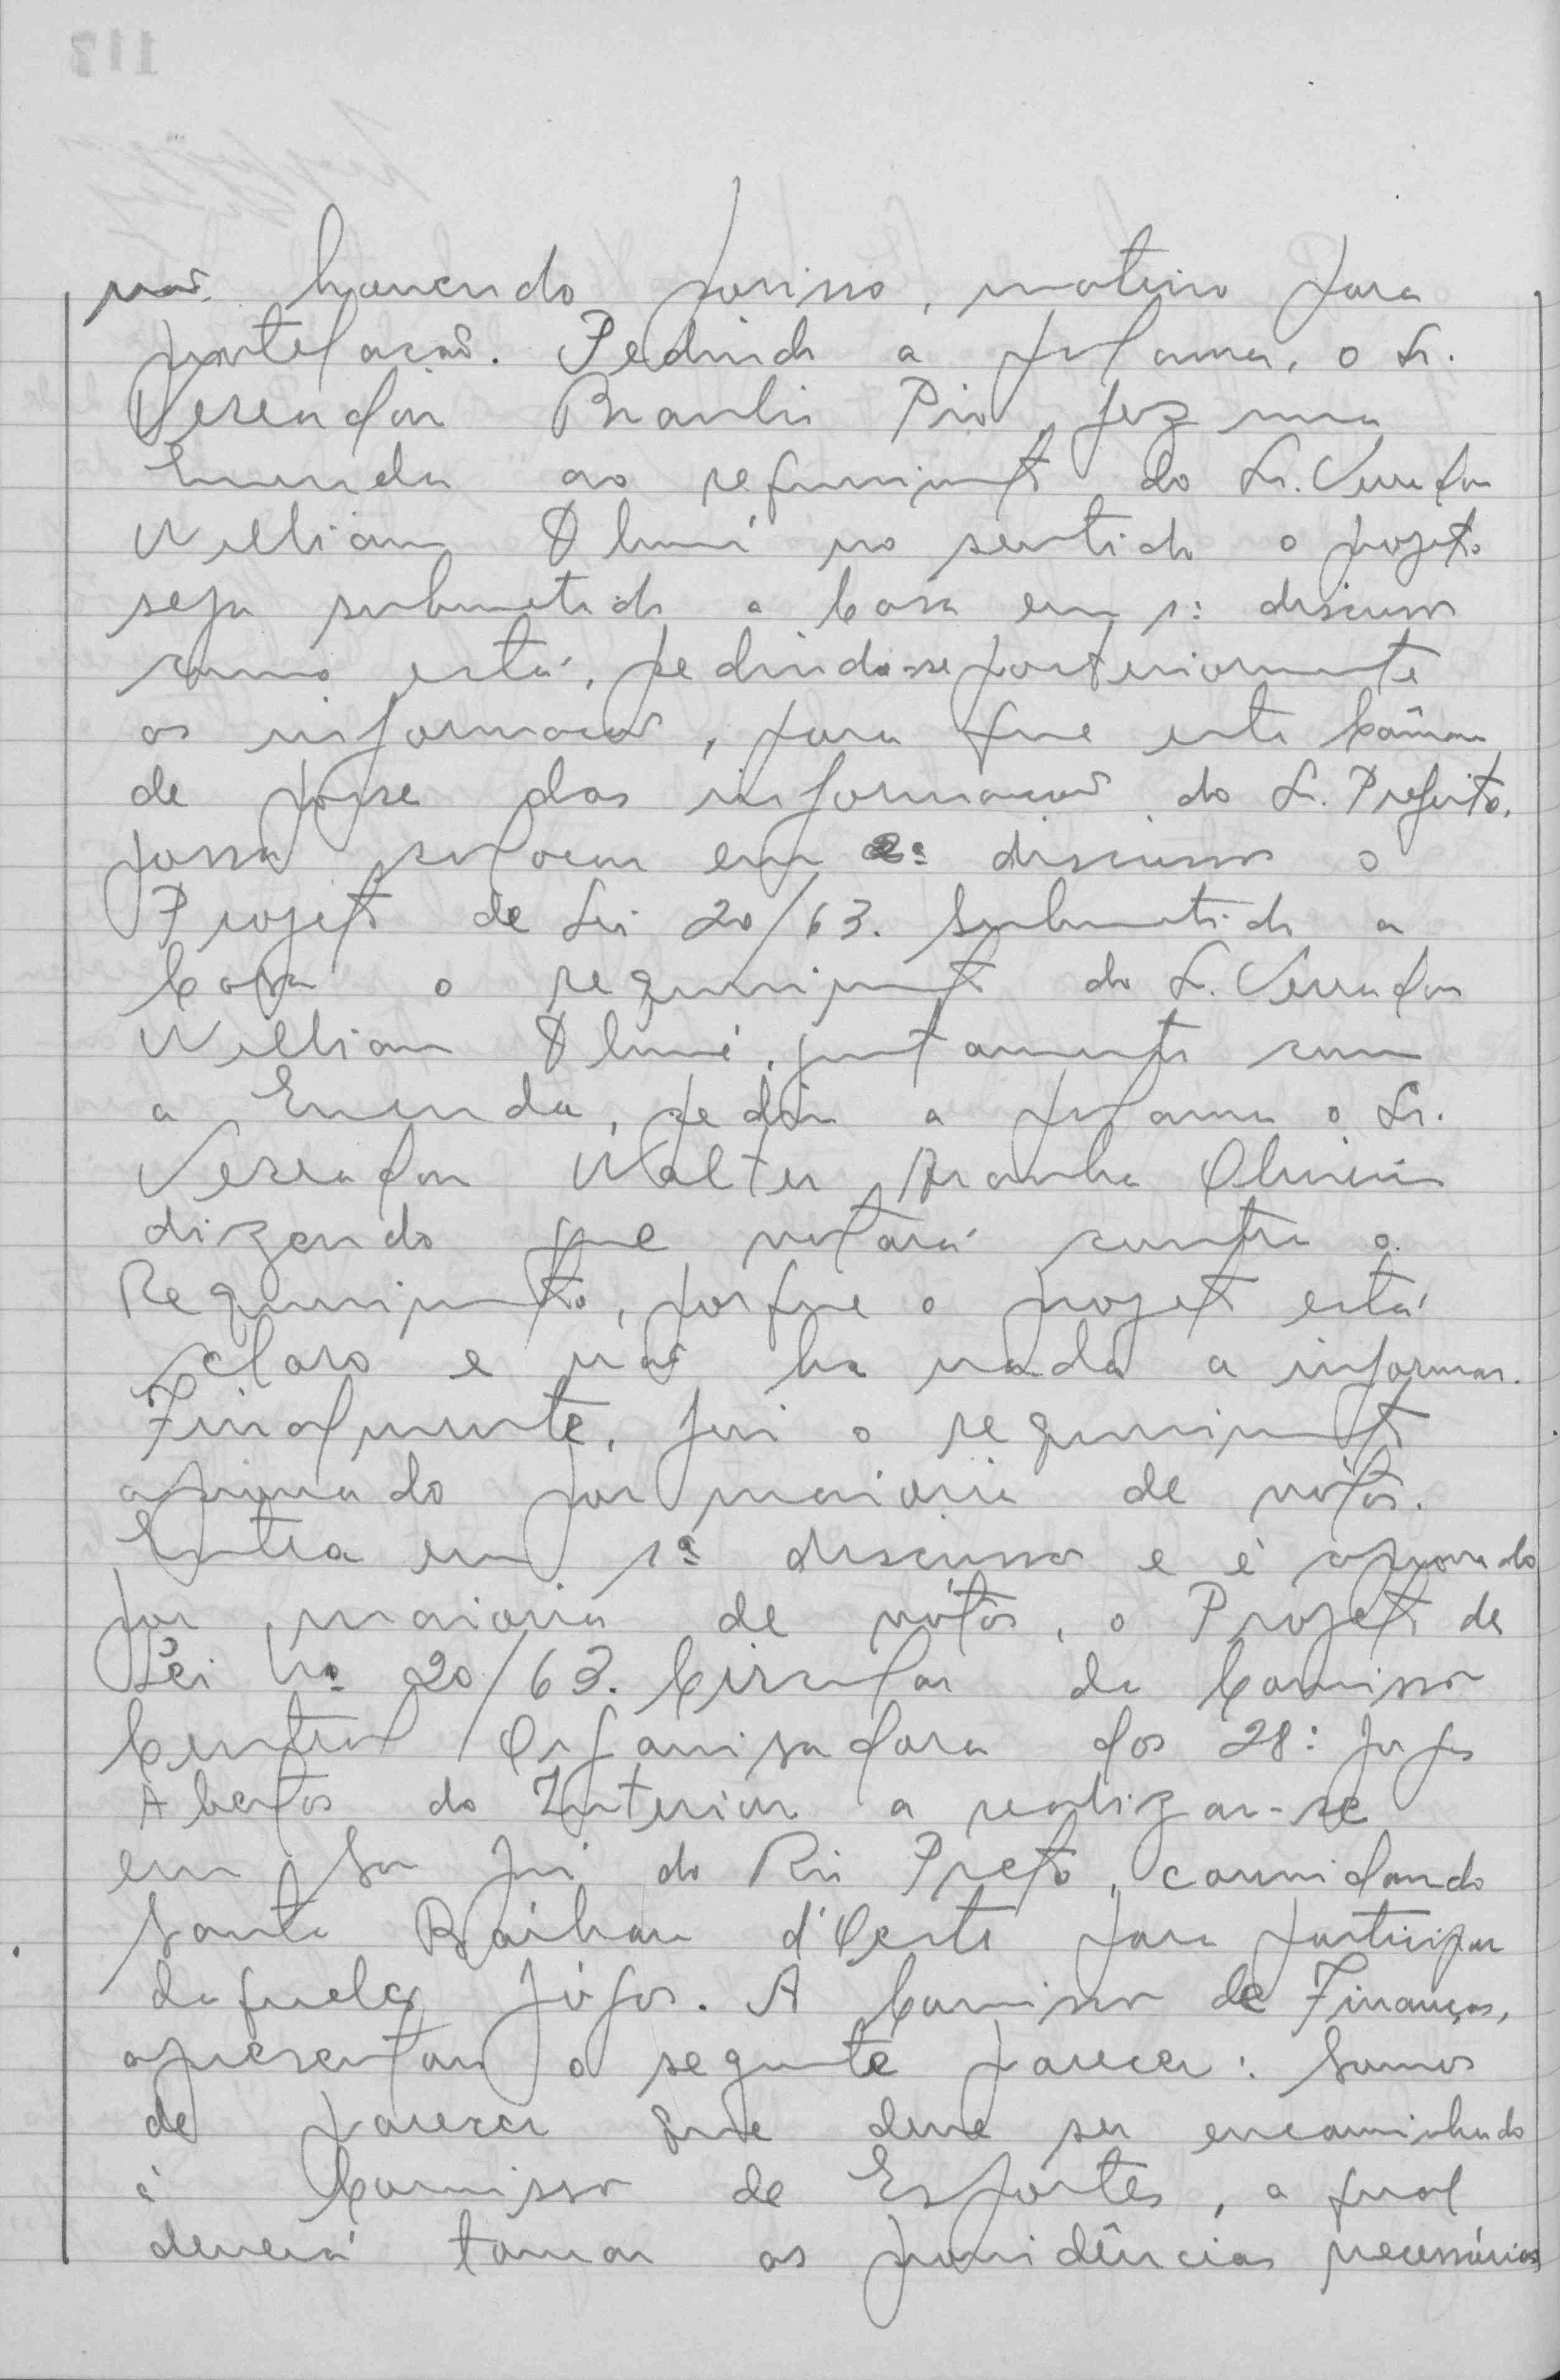 não havendo porisso, motivo para
protelação. Pedindo a palavra, o Sr.
Vereador Braulio Pio, fez uma
Emenda ao requerimento do Sr. Vereador
Wellian no sentido o projeto
seja submetido a Casa em 1ª discussão
como está, pedindo-se posteriormente
as informações, para que esta Câmara
de posse das informações do Sr. Prefeito,
possa colocar em 2ª discussão o
Projeto de Lei 20/63. Submetido a
Casa o requerimento do Sr. Vereador
Wellian juntamente com
a Emenda, pediu a palavra o Sr.
Vereador Walter Aranha Oliveira
dizendo que votará contra o
Requerimento, porque o projeto está
claro e não ha nada a informar.
Finalmente, foi o requerimento
aprovado por maioria de vótos.
Entra em 1ª discussão e é aprovado
por maioria de vótos, o Projeto de
Lei Nº 20/63. Circular da Comissão
Central Organisadora dos 28º Jogos
Abertos do Interior a realizar-se
em São José do Rio Preto, convidando
Santa Bárbara d'Oeste para participar
daqueles jógos. A Comissão de Finanças,
apresentou o seguinte parecer: Somos
de parecer que deve ser encaminhado
à Comissão de Esportes, a qual
deverá tomar as providências necessárias